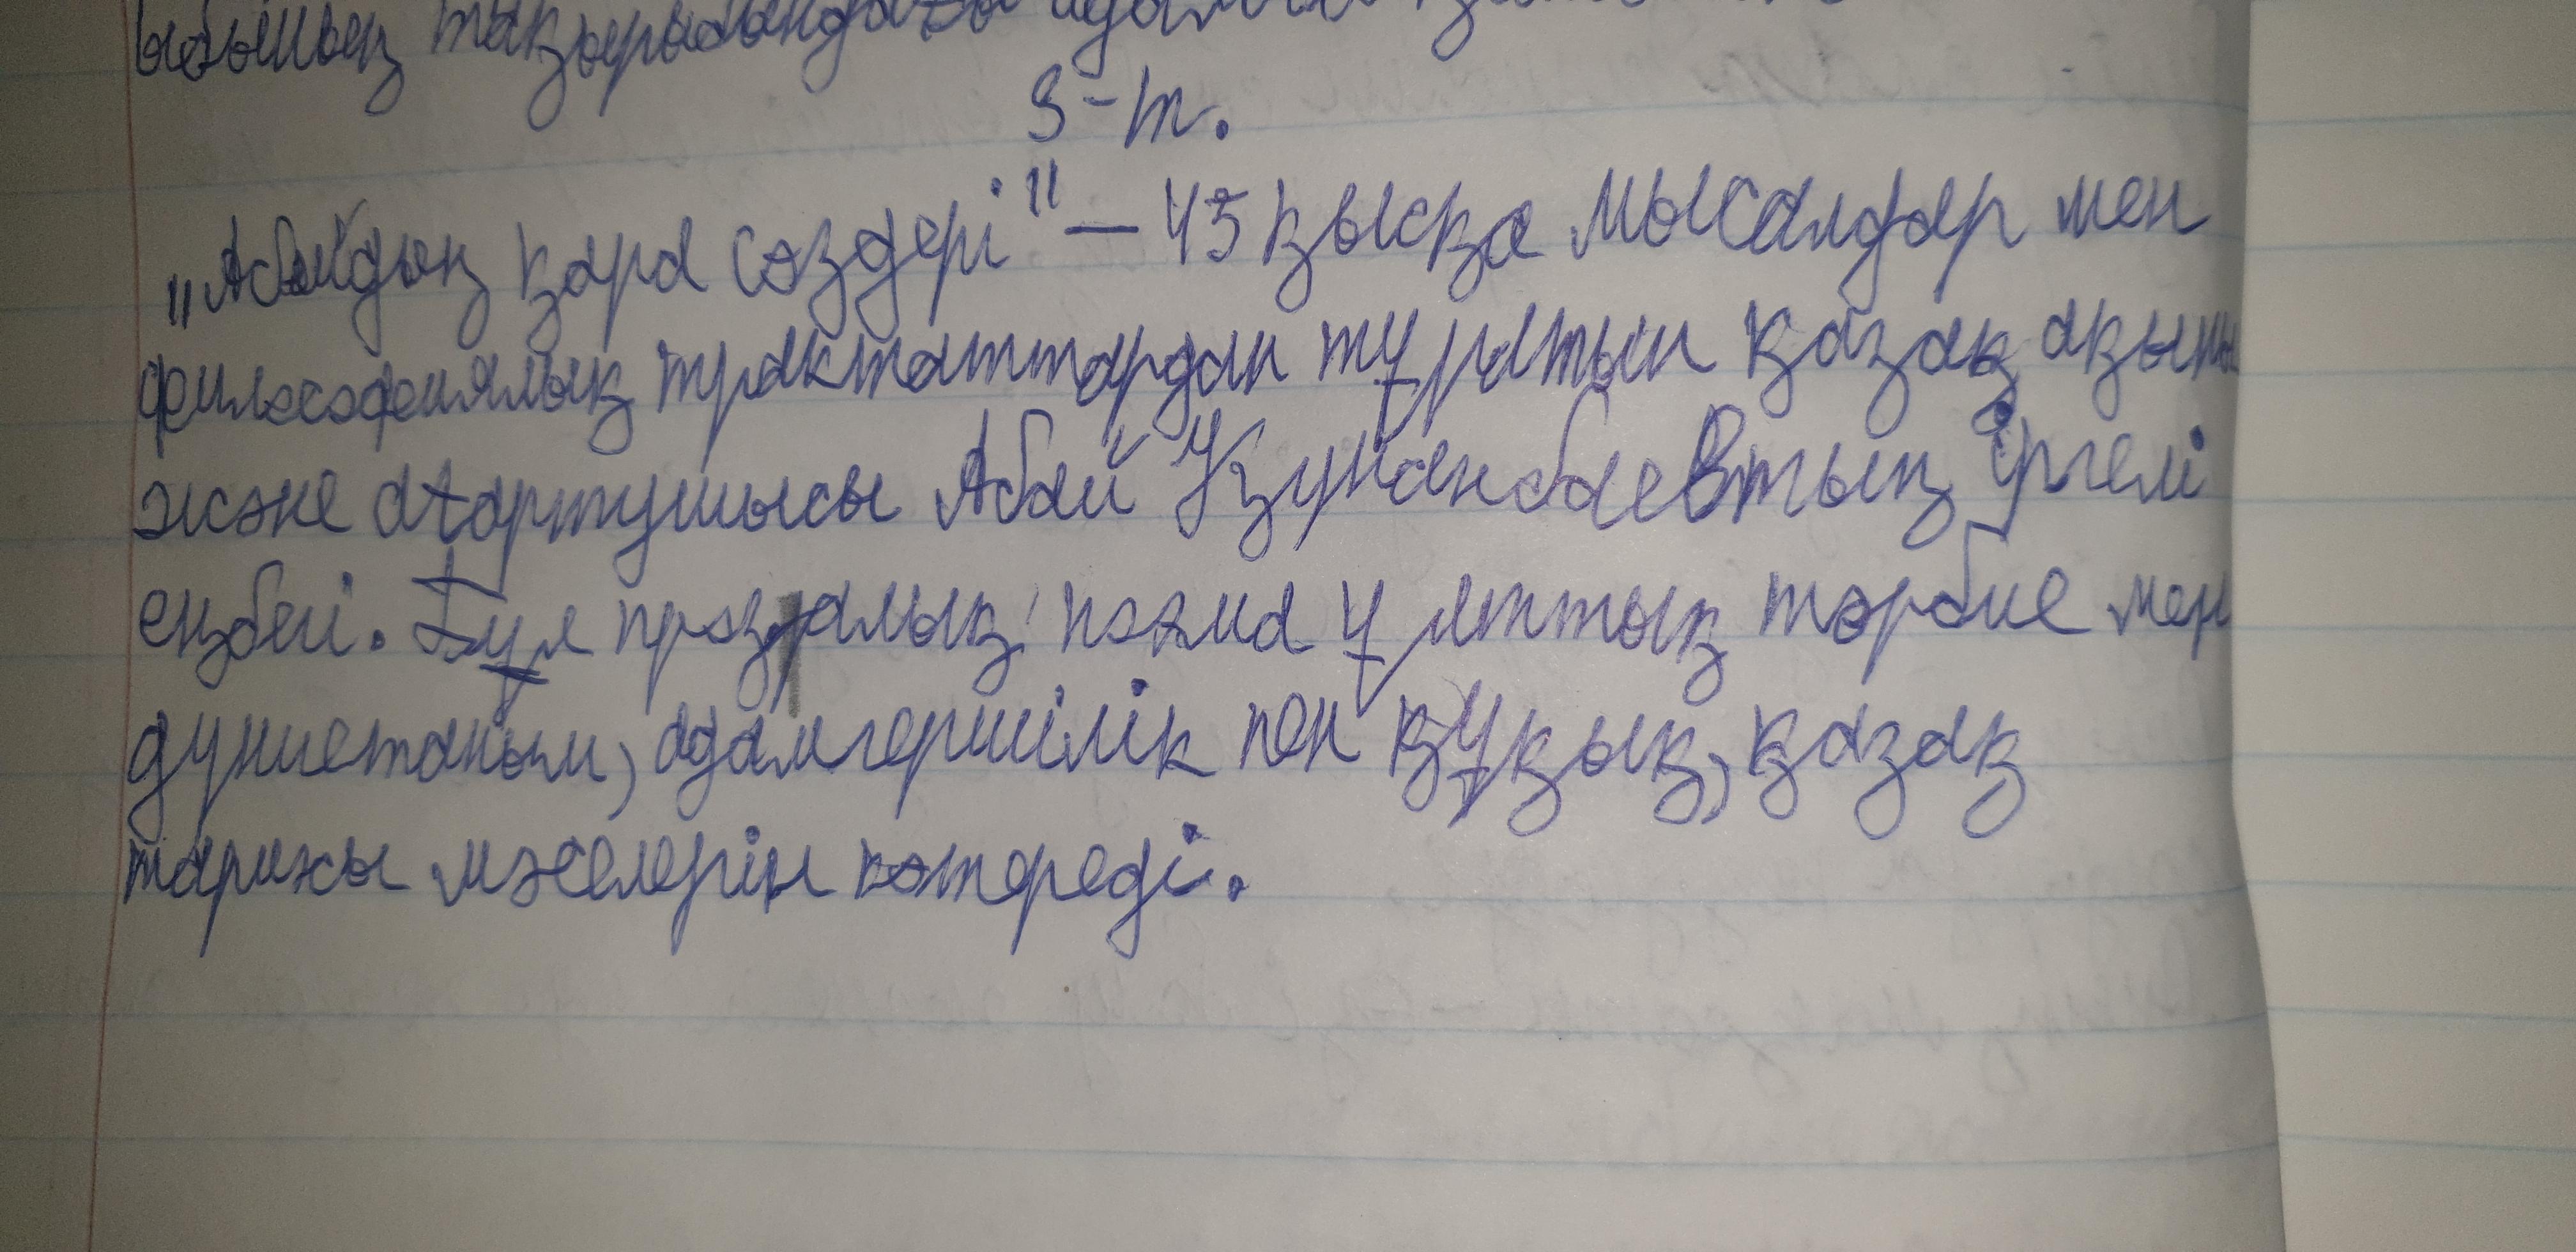 тақырыбындағы
3-т.
"Абайдың қара сөздері" — 45 қысқа мысалдар мен
философиялық трактаттардан тұратын қазақ ақыны
және ағартушысы Абай Құнанбаевтың іргелі
еңбегі. Бұл прозалық поэма ұлттық тәрбие мен
дүниетаным, адамгершілік пен құқық, қазақ
тарихы мәселерін көтереді.